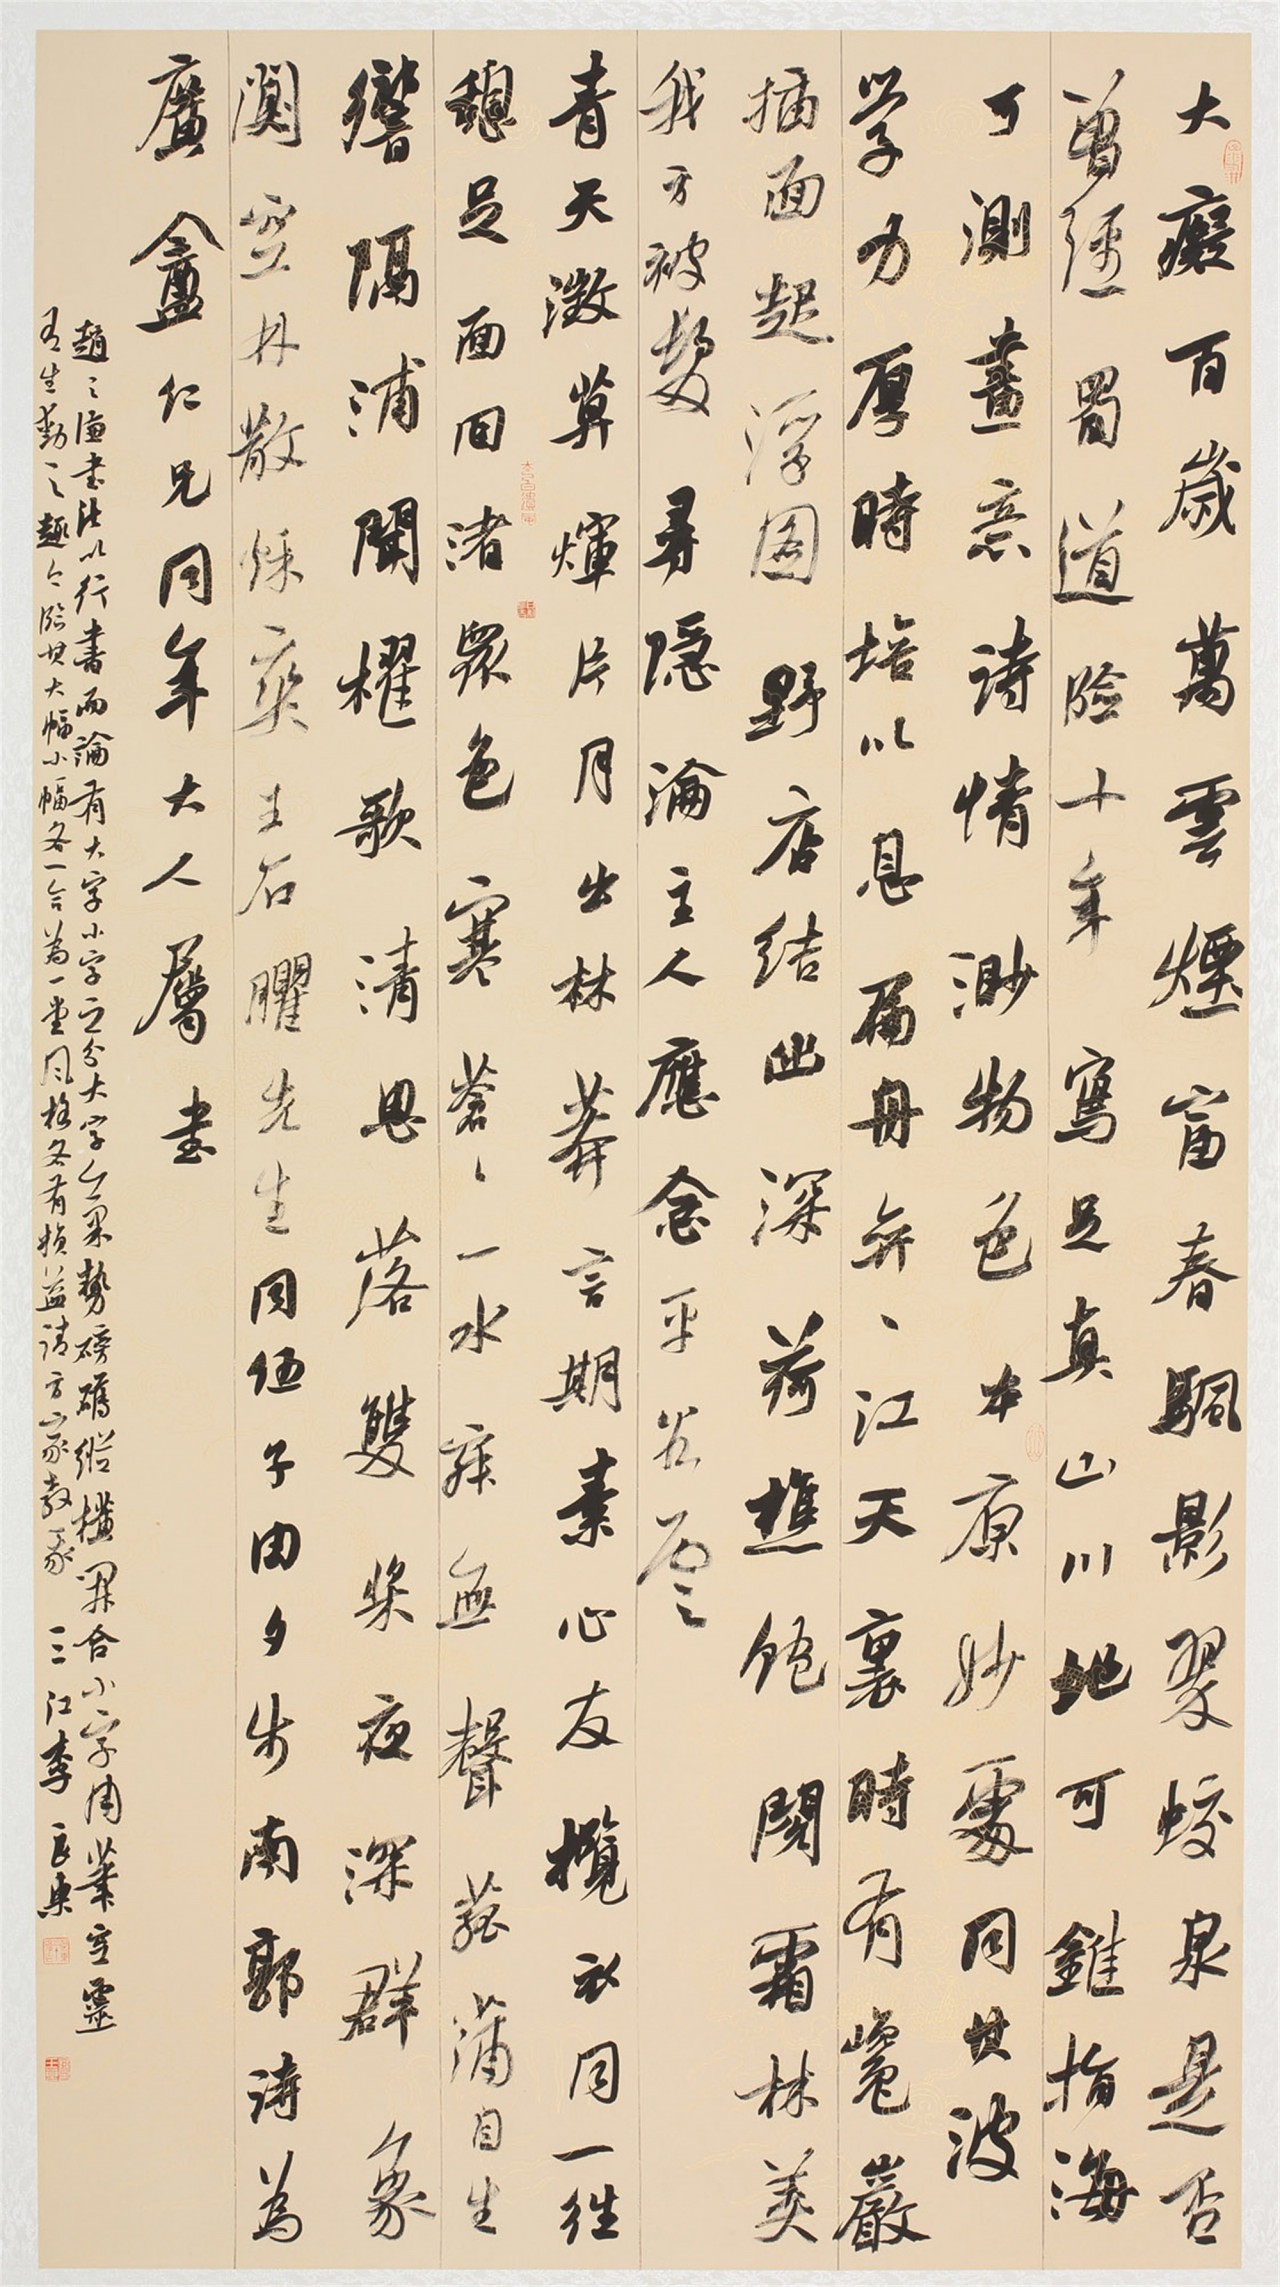 大癡百歲萬雲煙富春飄影翠蛟泉是否
曾經蜀道險十年寫足真山川地可錐指海
可測畫意詩情渺物色本原妙處同其波
學力厚時培以息扁舟舟江天裏時有巉巖
插面起浮圖野店結幽深荷樵飽閱霜林美
我方被髮尋隱淪主人應念平
青天澂算煇片月出林莽言期素心友攬衣同一往
憩足面回渚眾色寒蒼蒼一水寂無聲菰蒲自生
響隔浦聞櫂歌清思落雙槳夜深群象
闃空林散爍奕王石臞先生同伍子由夕步南郭詩為
廉盦仁兄同年大人屬書
趙之謙書法以行書而論有大字小字之分大字氣勢磅礴縱橫開合小字用筆空靈
有生動之趣今臨其大幅小幅各一合為一堂風格各有損益請方家教我 三江李良東